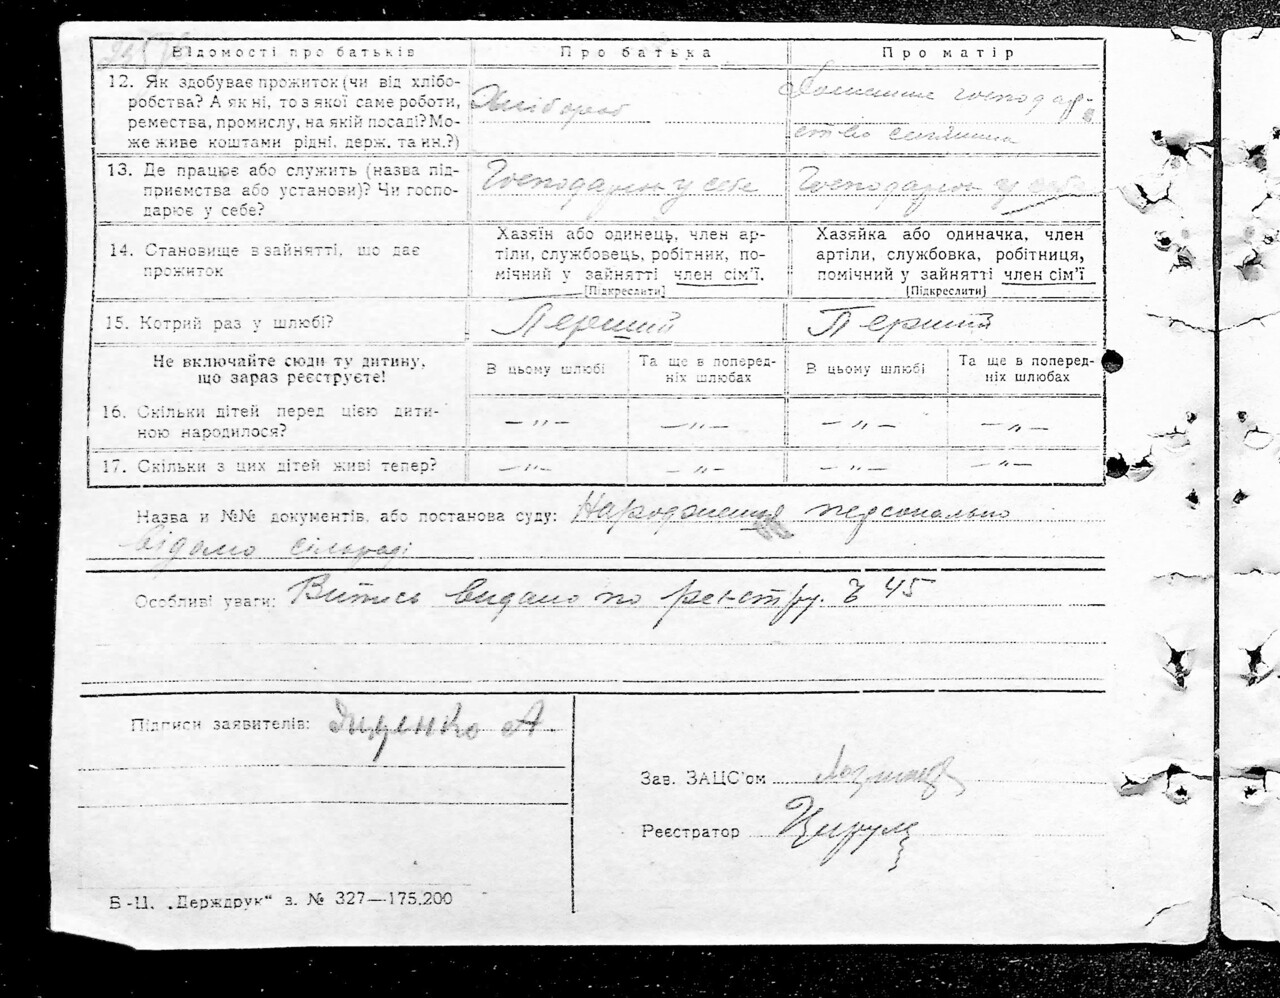 Відомості про батьків Про батька Про матір
12. Як здобуває прожиток (чи від хлібо-
робства? А як ні, то з якої саме роботи,
ремества, промислу, на якій посаді? Мо-
же живе коштами рідні, держ. та ин.?)
Хлібороб
Домашнє господар-
ство селянина
13. Де працює або служить (назва під-
приємства або установи)? Чи госпо-
дарює у себе?
Господарює у себе Господарює у себе
14. Становище в зайнятті, що дає
прожиток
Хазяїн або одинець, член ар-
тіли, службовець, робітник, по-
мічний у зайнятті член сім'ї.
[Підкреслити]
Хазяйка або одиначка, член
артіли, службовка, робітниця,
помічний у зайнятті член сім'ї
[Підкреслити]
15. Котрий раз у шлюбі? Перший Перший
Не включайте сюди ту дитину,
що зараз реєструєте!
В цьому шлюбі
Та ще в поперед-
ніх шлюбах
В цьому шлюбі
Та ще в поперед-
ніх шлюбах
16. Скільки дітей перед цією дити-
ною народилося?
— „ — — „ — — „ — — „ —
17. Скільки з цих дітей живі тепер? — „ — — „ — — „ — — „ —
Назва и №№ документів, або постанова суду: Народження персонально
відомо сільраді
Особливі уваги: Витись видано по реєстру. № 45
Підписи заявителів: Яценко А
Зав. ЗАЦС'ом
Реєстратор
Б-Ц. „Держдрук“ з. № 327—175.200